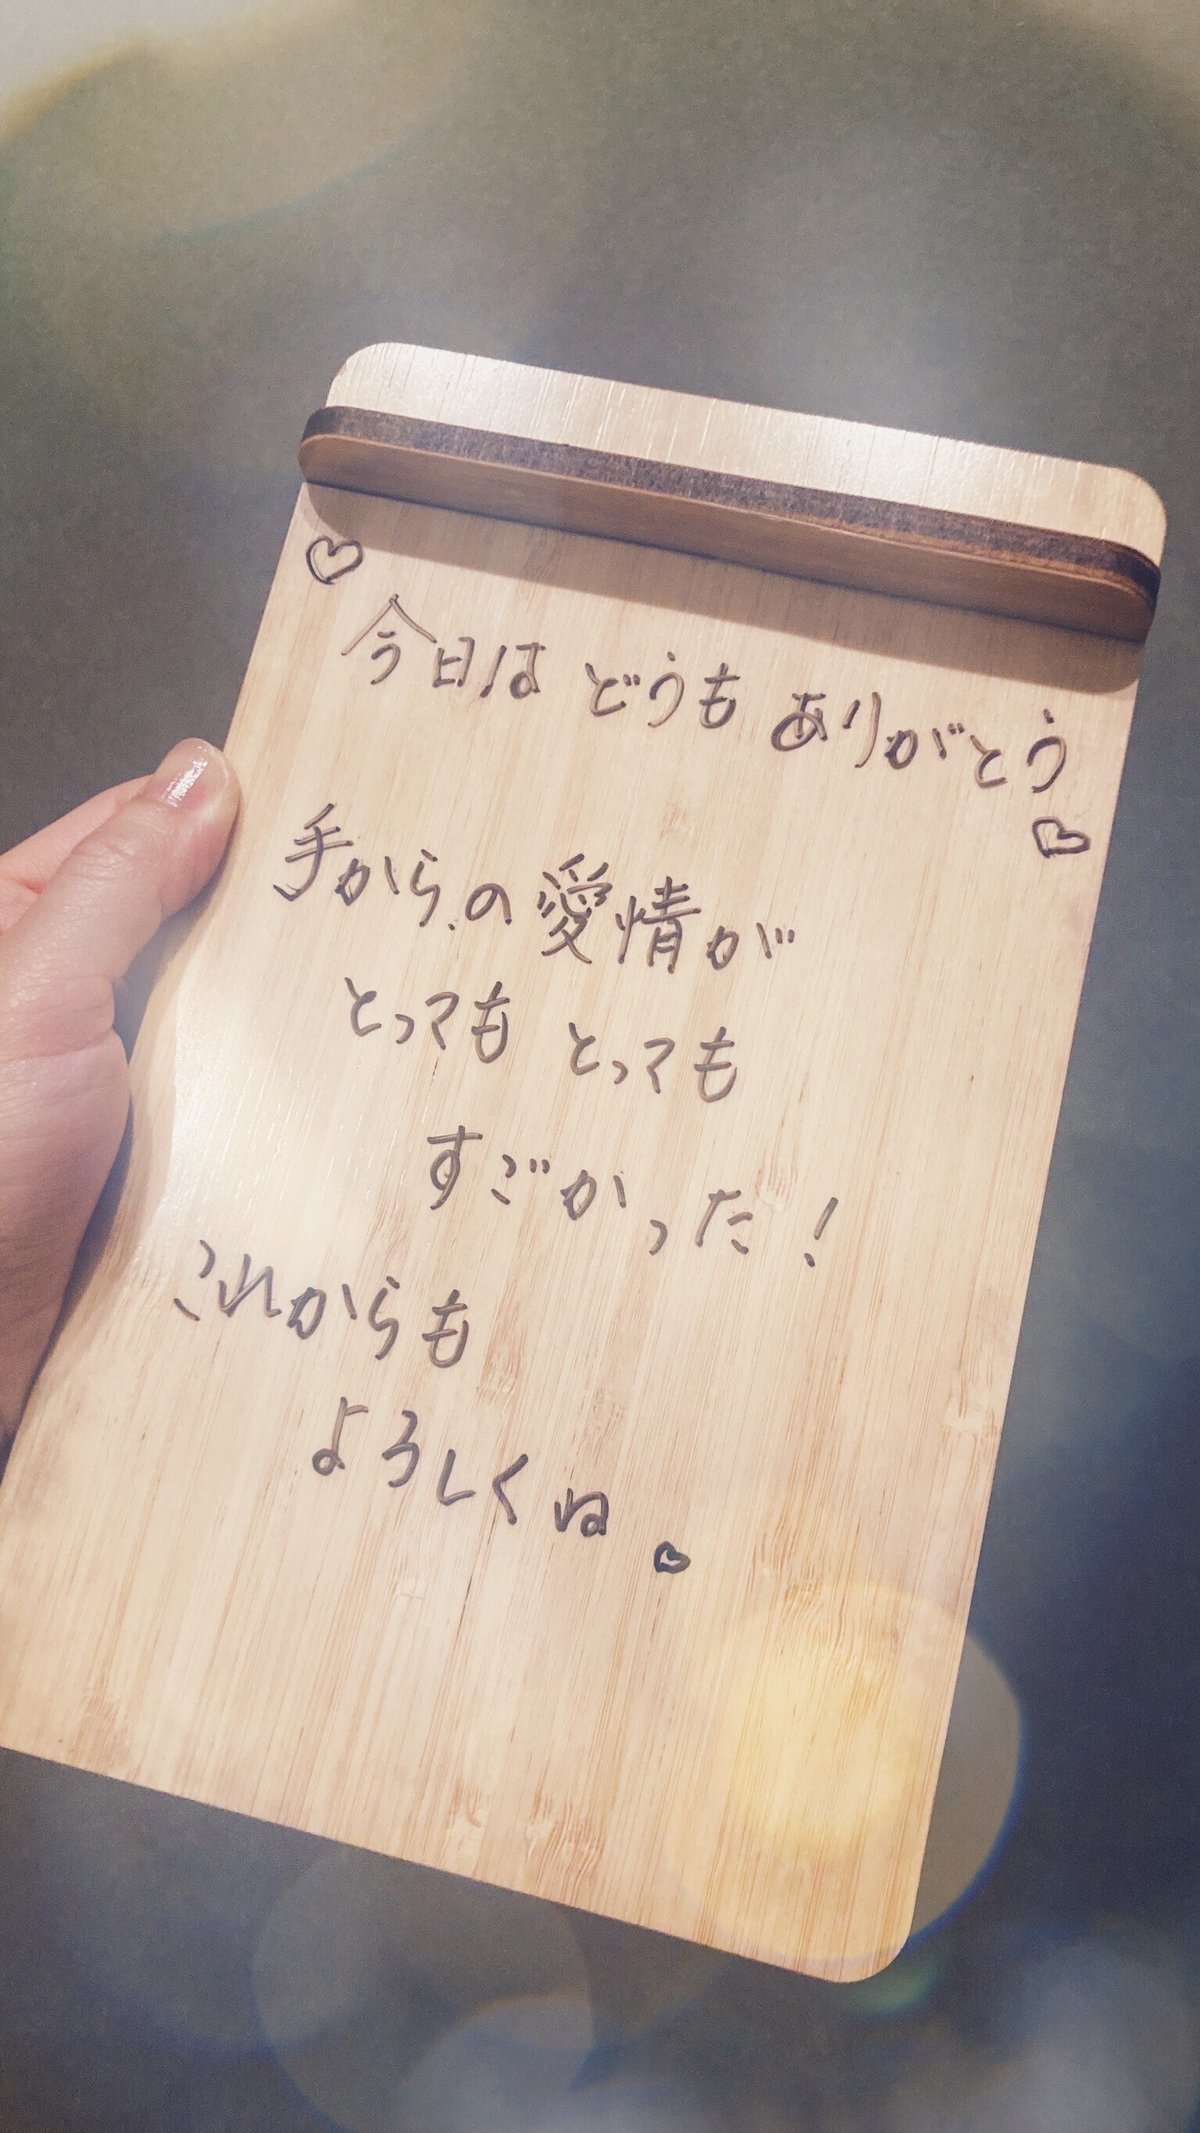 ♡
今日は どうも ありがとう
♡
手からの愛情が
とっても とっても
すごかった!
これからも
よろしくね。♡